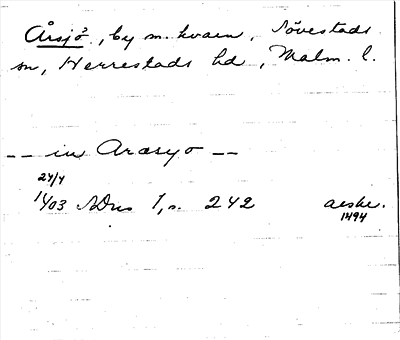 Årsjö, by m. kvarn, Sövestads
sn, Herrestads hd, Malm. l.
-- in Aræsyo --
24/4
1403 SDns 1, s. 242 aeske.
1494